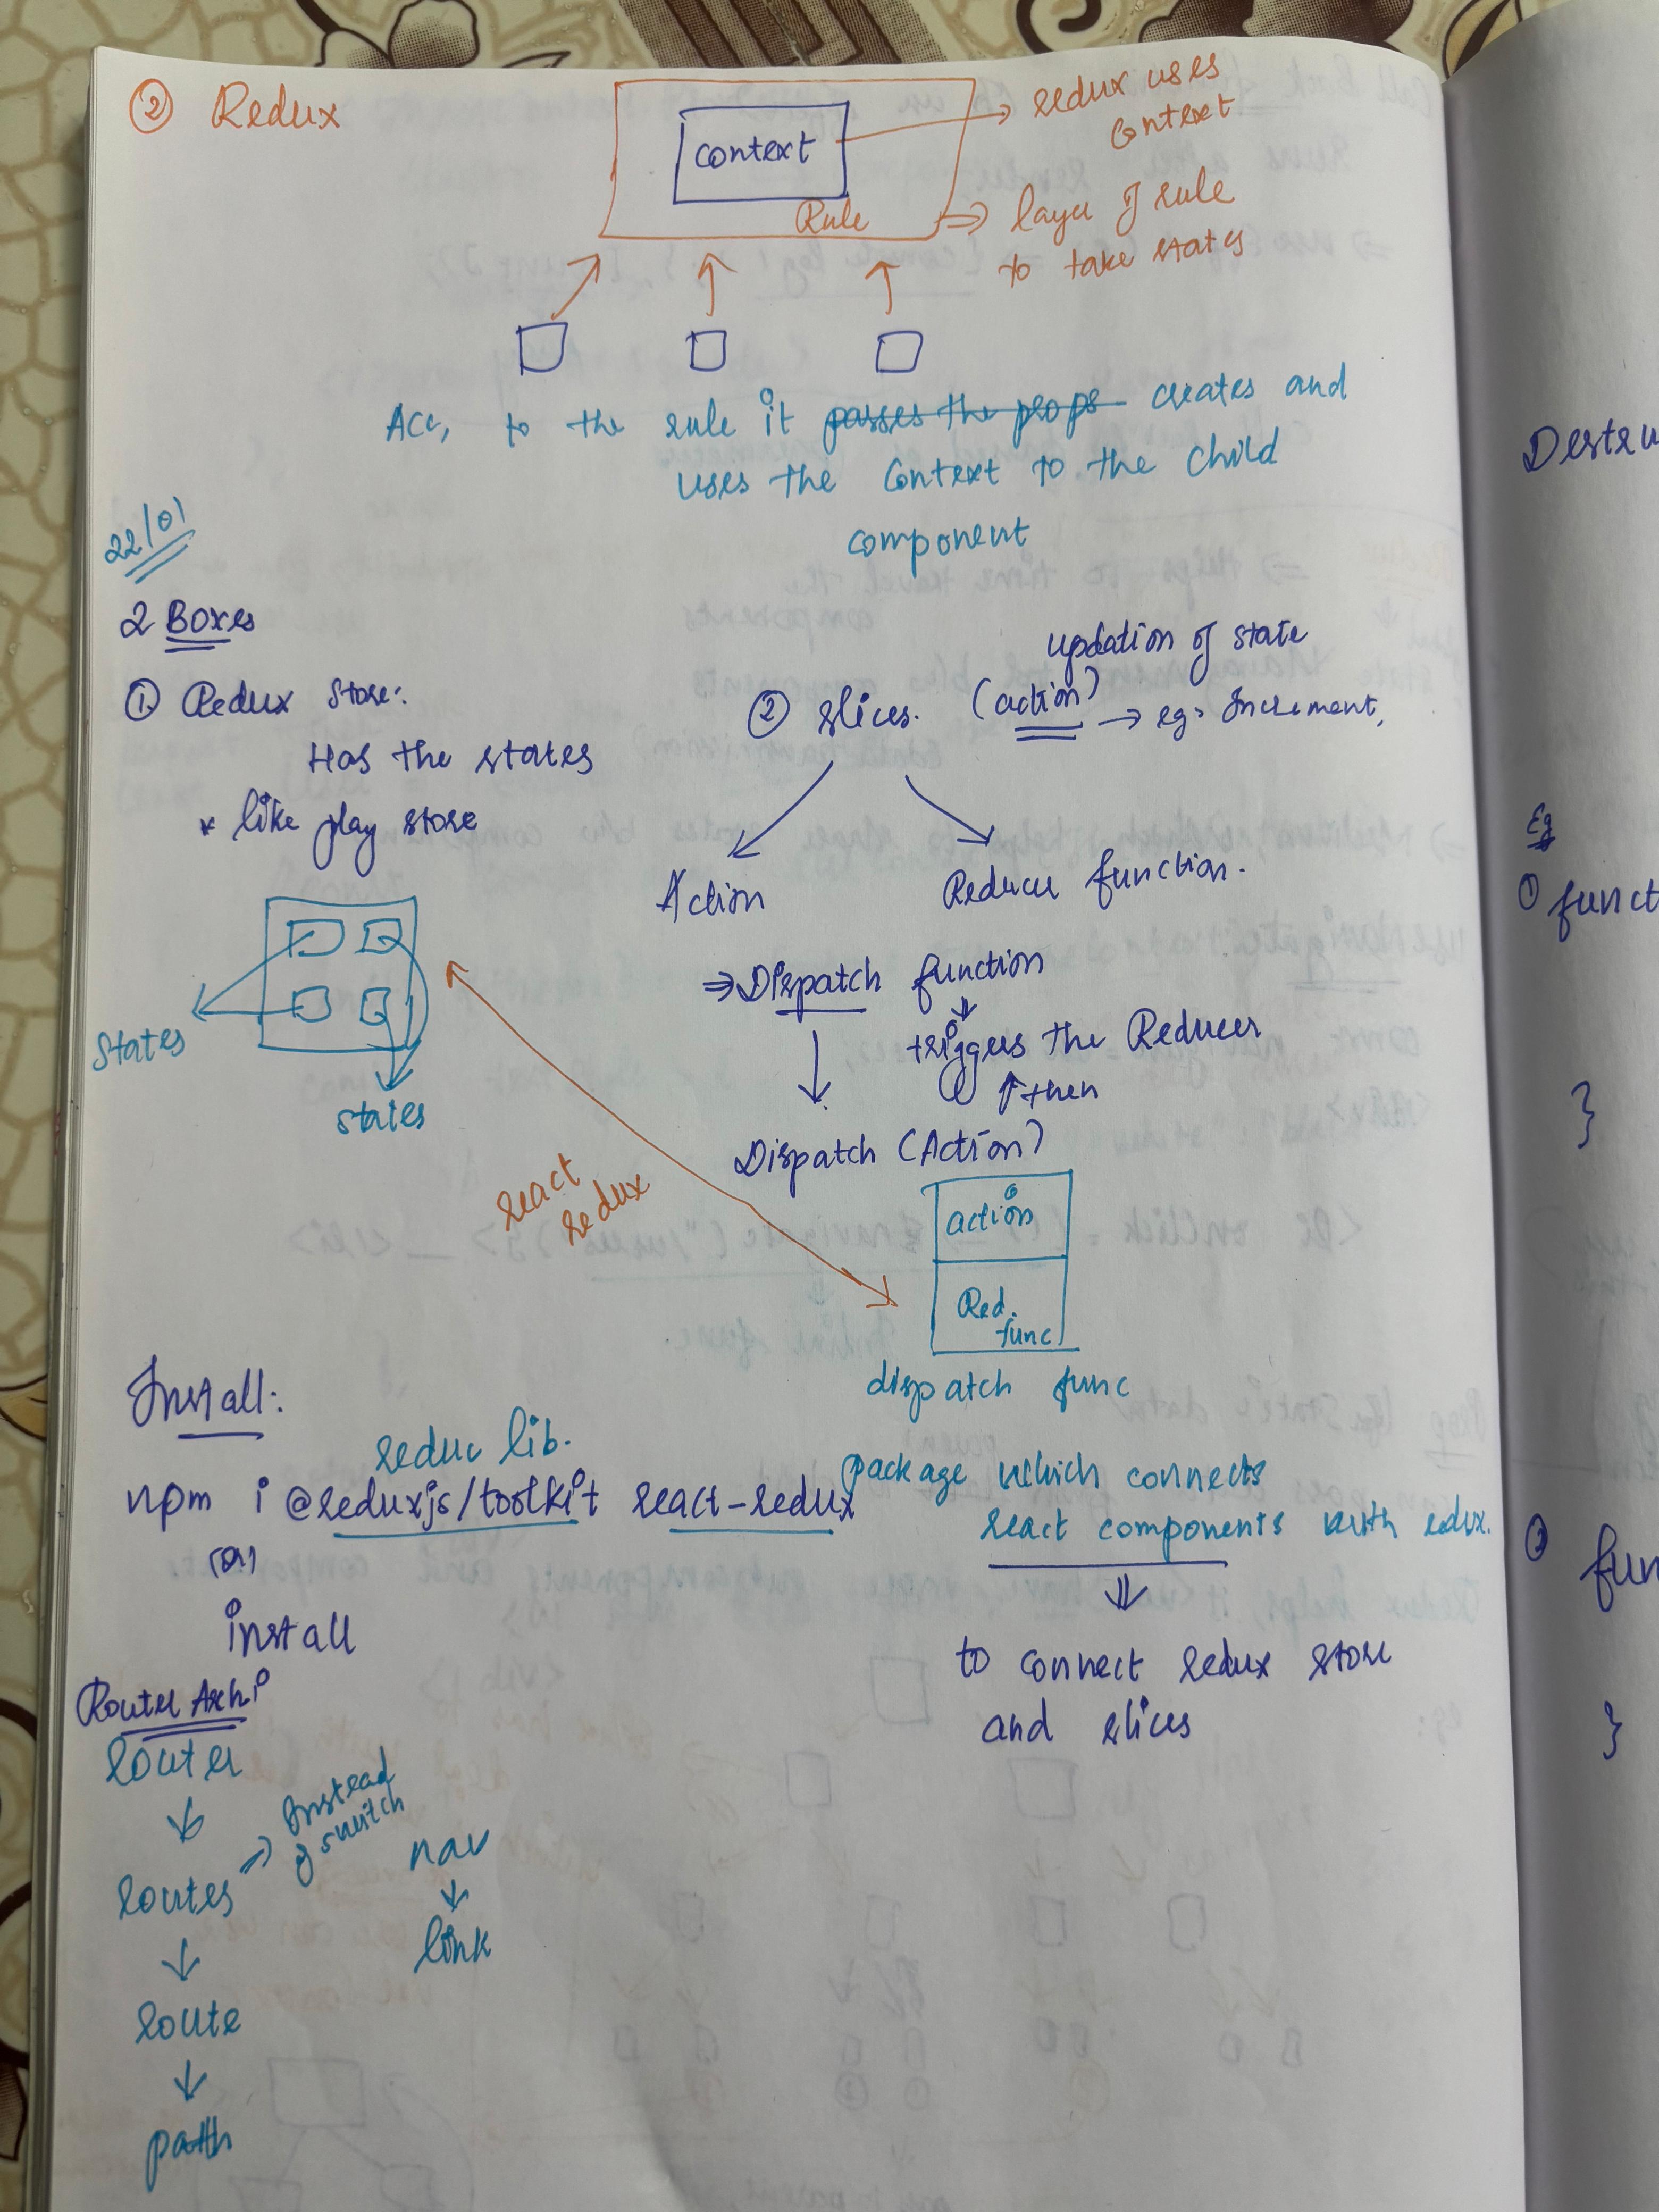 ② Redux
context
Rule
→ redux uses
context
⇒ layer of rule
to take states
Acc, to the rule it passes the props creates and
uses the Context to the child
component
22/01
2 Boxes
① Redux Store:
Has the states
* like play store
States
states
② slices. (action)
updation of state
→ eg: Increment,
Action
Reducer function.
⇒ Dispatch function
triggers the Reducer
↑ then
Dispatch (Action)
action
Red.
func
dispatch func
react
redux
Install:
redux lib.
npm i @reduxjs/toolkit react-redux
(or)
install
package which connects
react components with redux.
to connect redux store
and slices
Router Archi
Router
Routes
⇒ Instead
of switch
route
path
nav
link
Eg
① funct
}
}